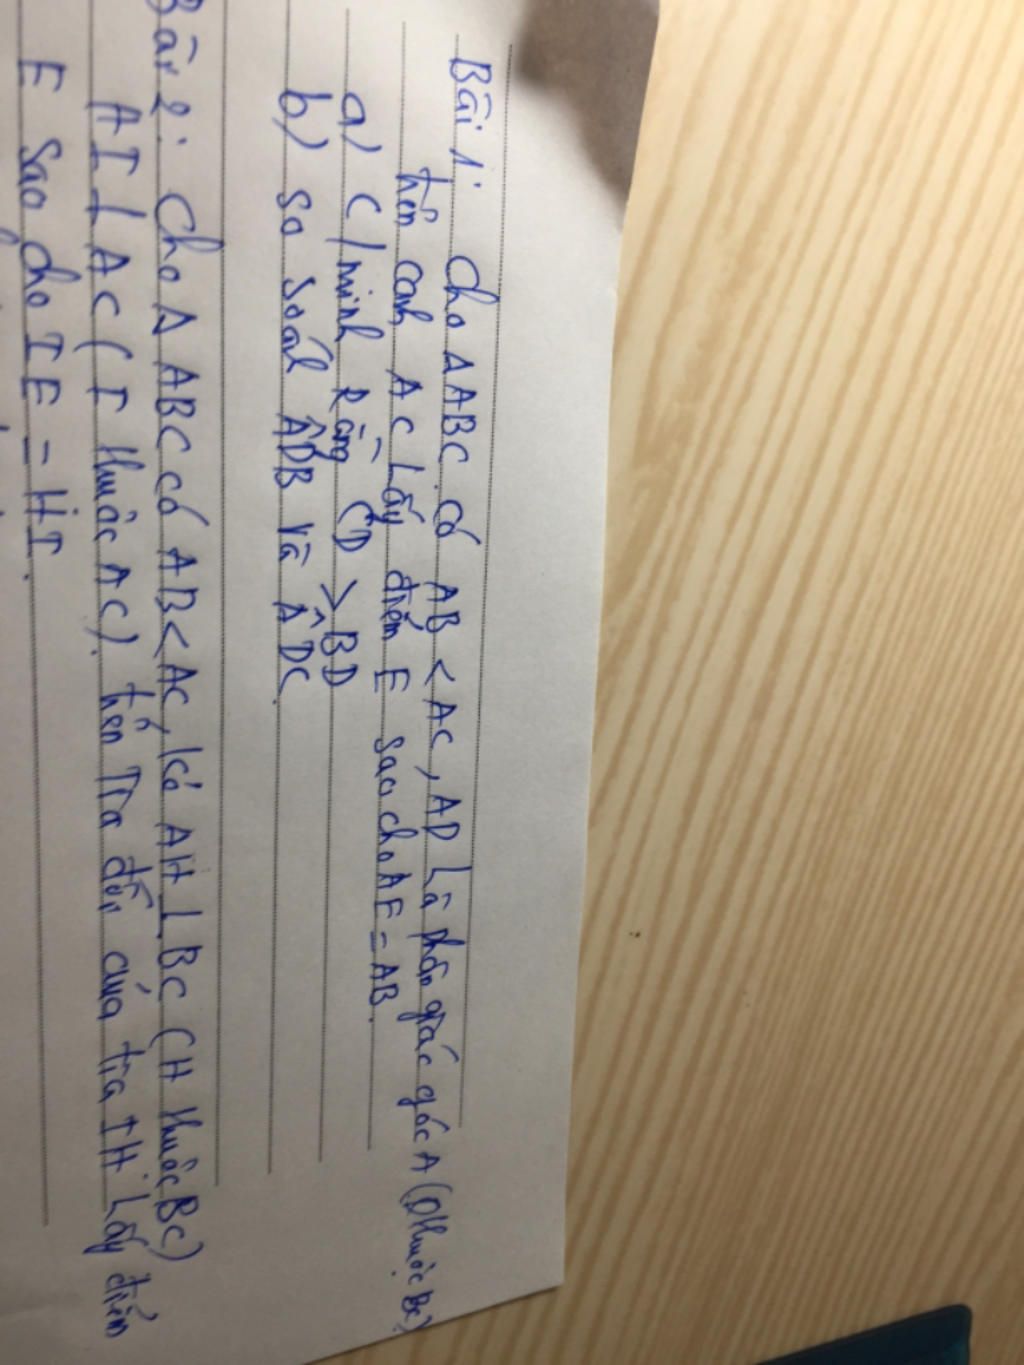 Bài 1: Cho Δ ABC có AB < AC, AD là phân giác góc A (D thuộc BC).
trên cạnh AC lấy điểm E sao cho AE = AB.
a) C/minh Rằng CD > BD
b) So Soánh ADB và ADC.
Bài 2: Cho Δ ABC có AB < AC, kẻ AH ⊥ BC (H thuộc BC)
AI ⊥ AC (I thuộc AC). trên Tia đối của tia IH lấy điểm
E sao cho IE = HI.